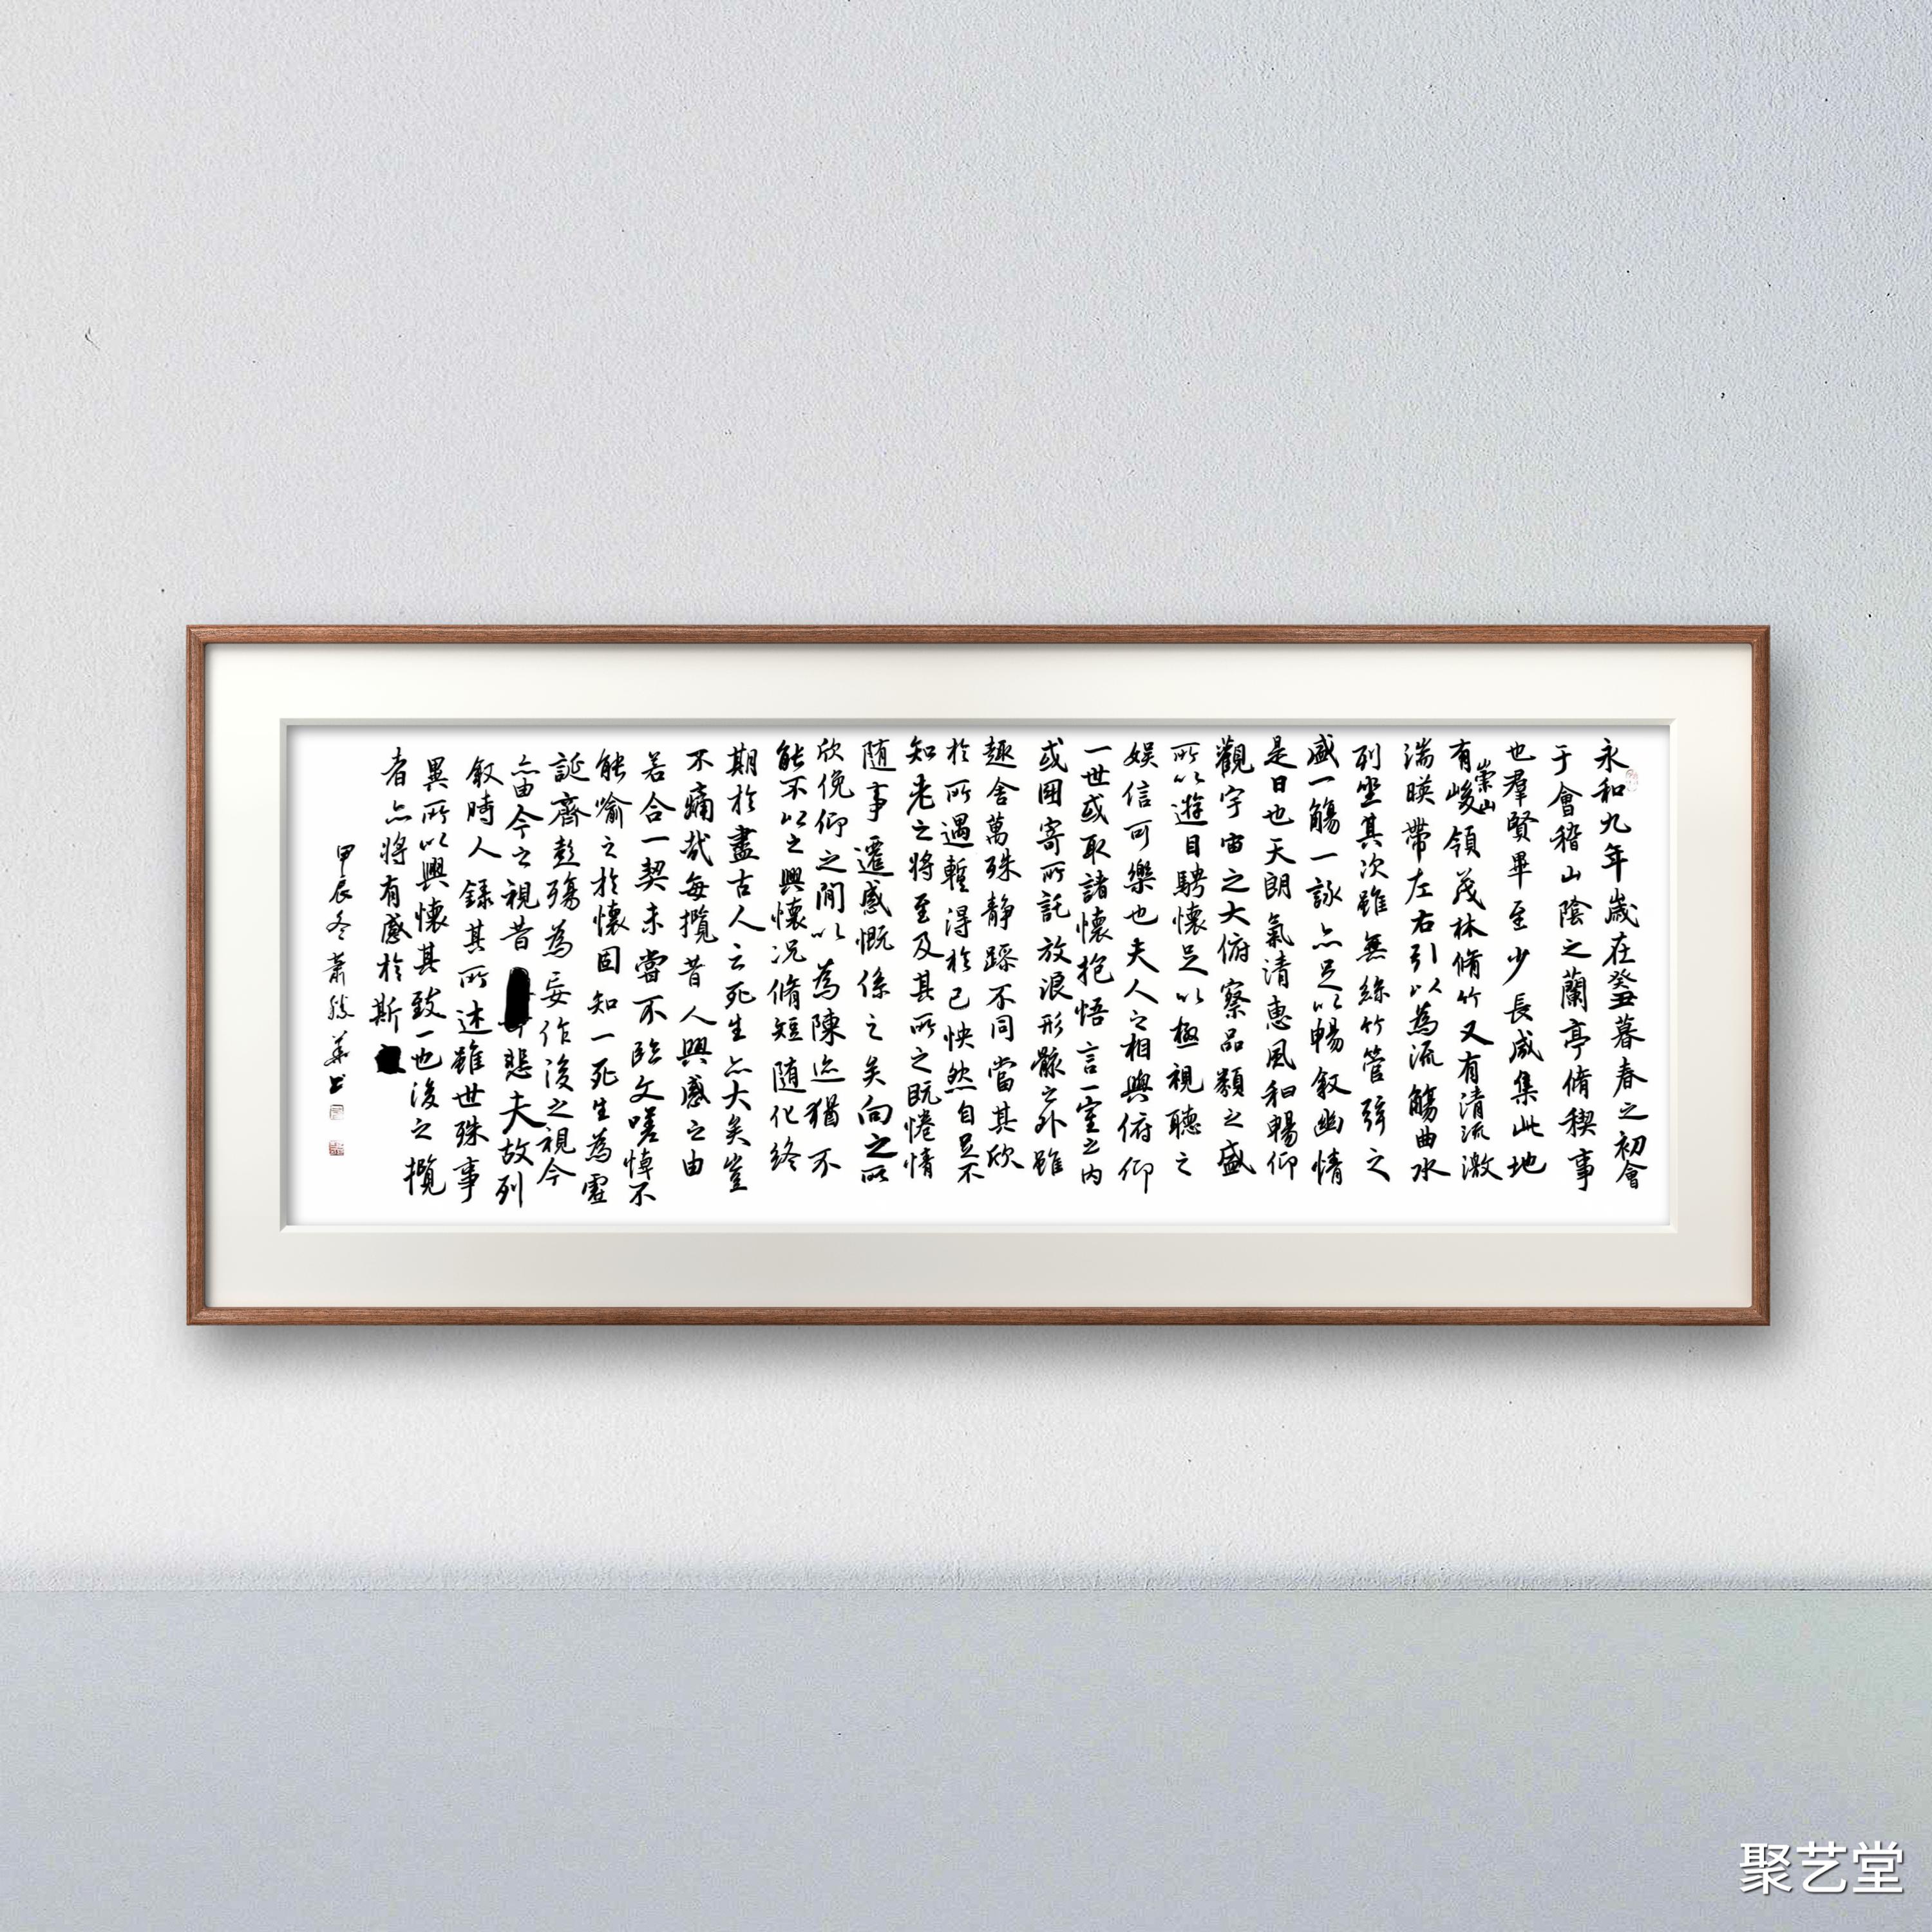 永和九年歲在癸丑暮春之初會
于會稽山陰之蘭亭脩稧事
也羣賢畢至少長咸集此地
有崇山峻領茂林脩竹又有清流激
湍暎帶左右引以為流觴曲水
列坐其次雖無絲竹管弦之
盛一觴一詠亦足以暢叙幽情
是日也天朗氣清惠風和暢仰
觀宇宙之大俯察品類之盛
所以遊目騁懷足以極視聽之
娛信可樂也夫人之相與俯仰
一世或取諸懷抱悟言一室之內
或因寄所託放浪形骸之外雖
趣舍萬殊静躁不同當其欣
於所遇暫得於己怏然自足不
知老之將至及其所之既惓情
隨事遷感慨係之矣向之所
欣俛仰之閒以為陳迹猶不
能不以之興懷况脩短隨化終
期於盡古人云死生亦大矣豈
不痛哉每攬昔人興感之由
若合一契未嘗不臨文嗟悼不
能喻之於懷固知一死生為虛
誕齊彭殤為妄作後之視今
亦由今之視昔悲夫故列
叙時人錄其所述雖世殊事
異所以興懷其致一也後之攬
者亦將有感於斯
甲辰冬蕭勝華書
聚艺堂